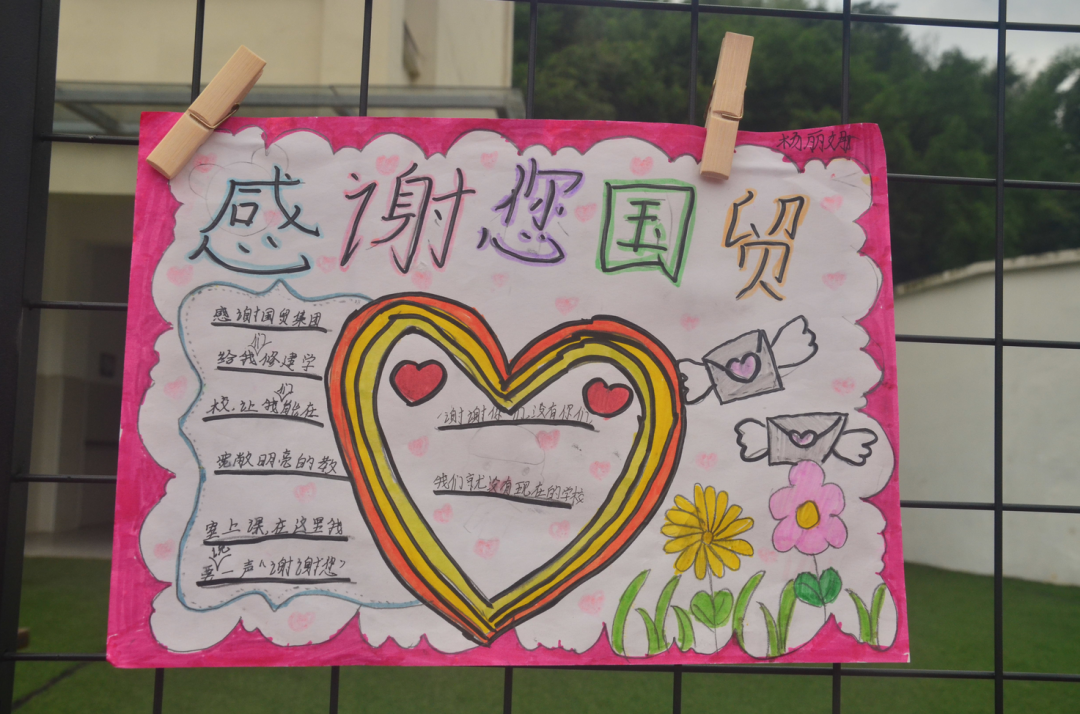 杨丽
感谢您国贸
感谢国贸集团
给我们修建学
校,让我们能在
宽敞明亮的教
室上课,在这里我
要说一声“谢谢您”
谢谢你们,没有你们
我们就没有现在的学校